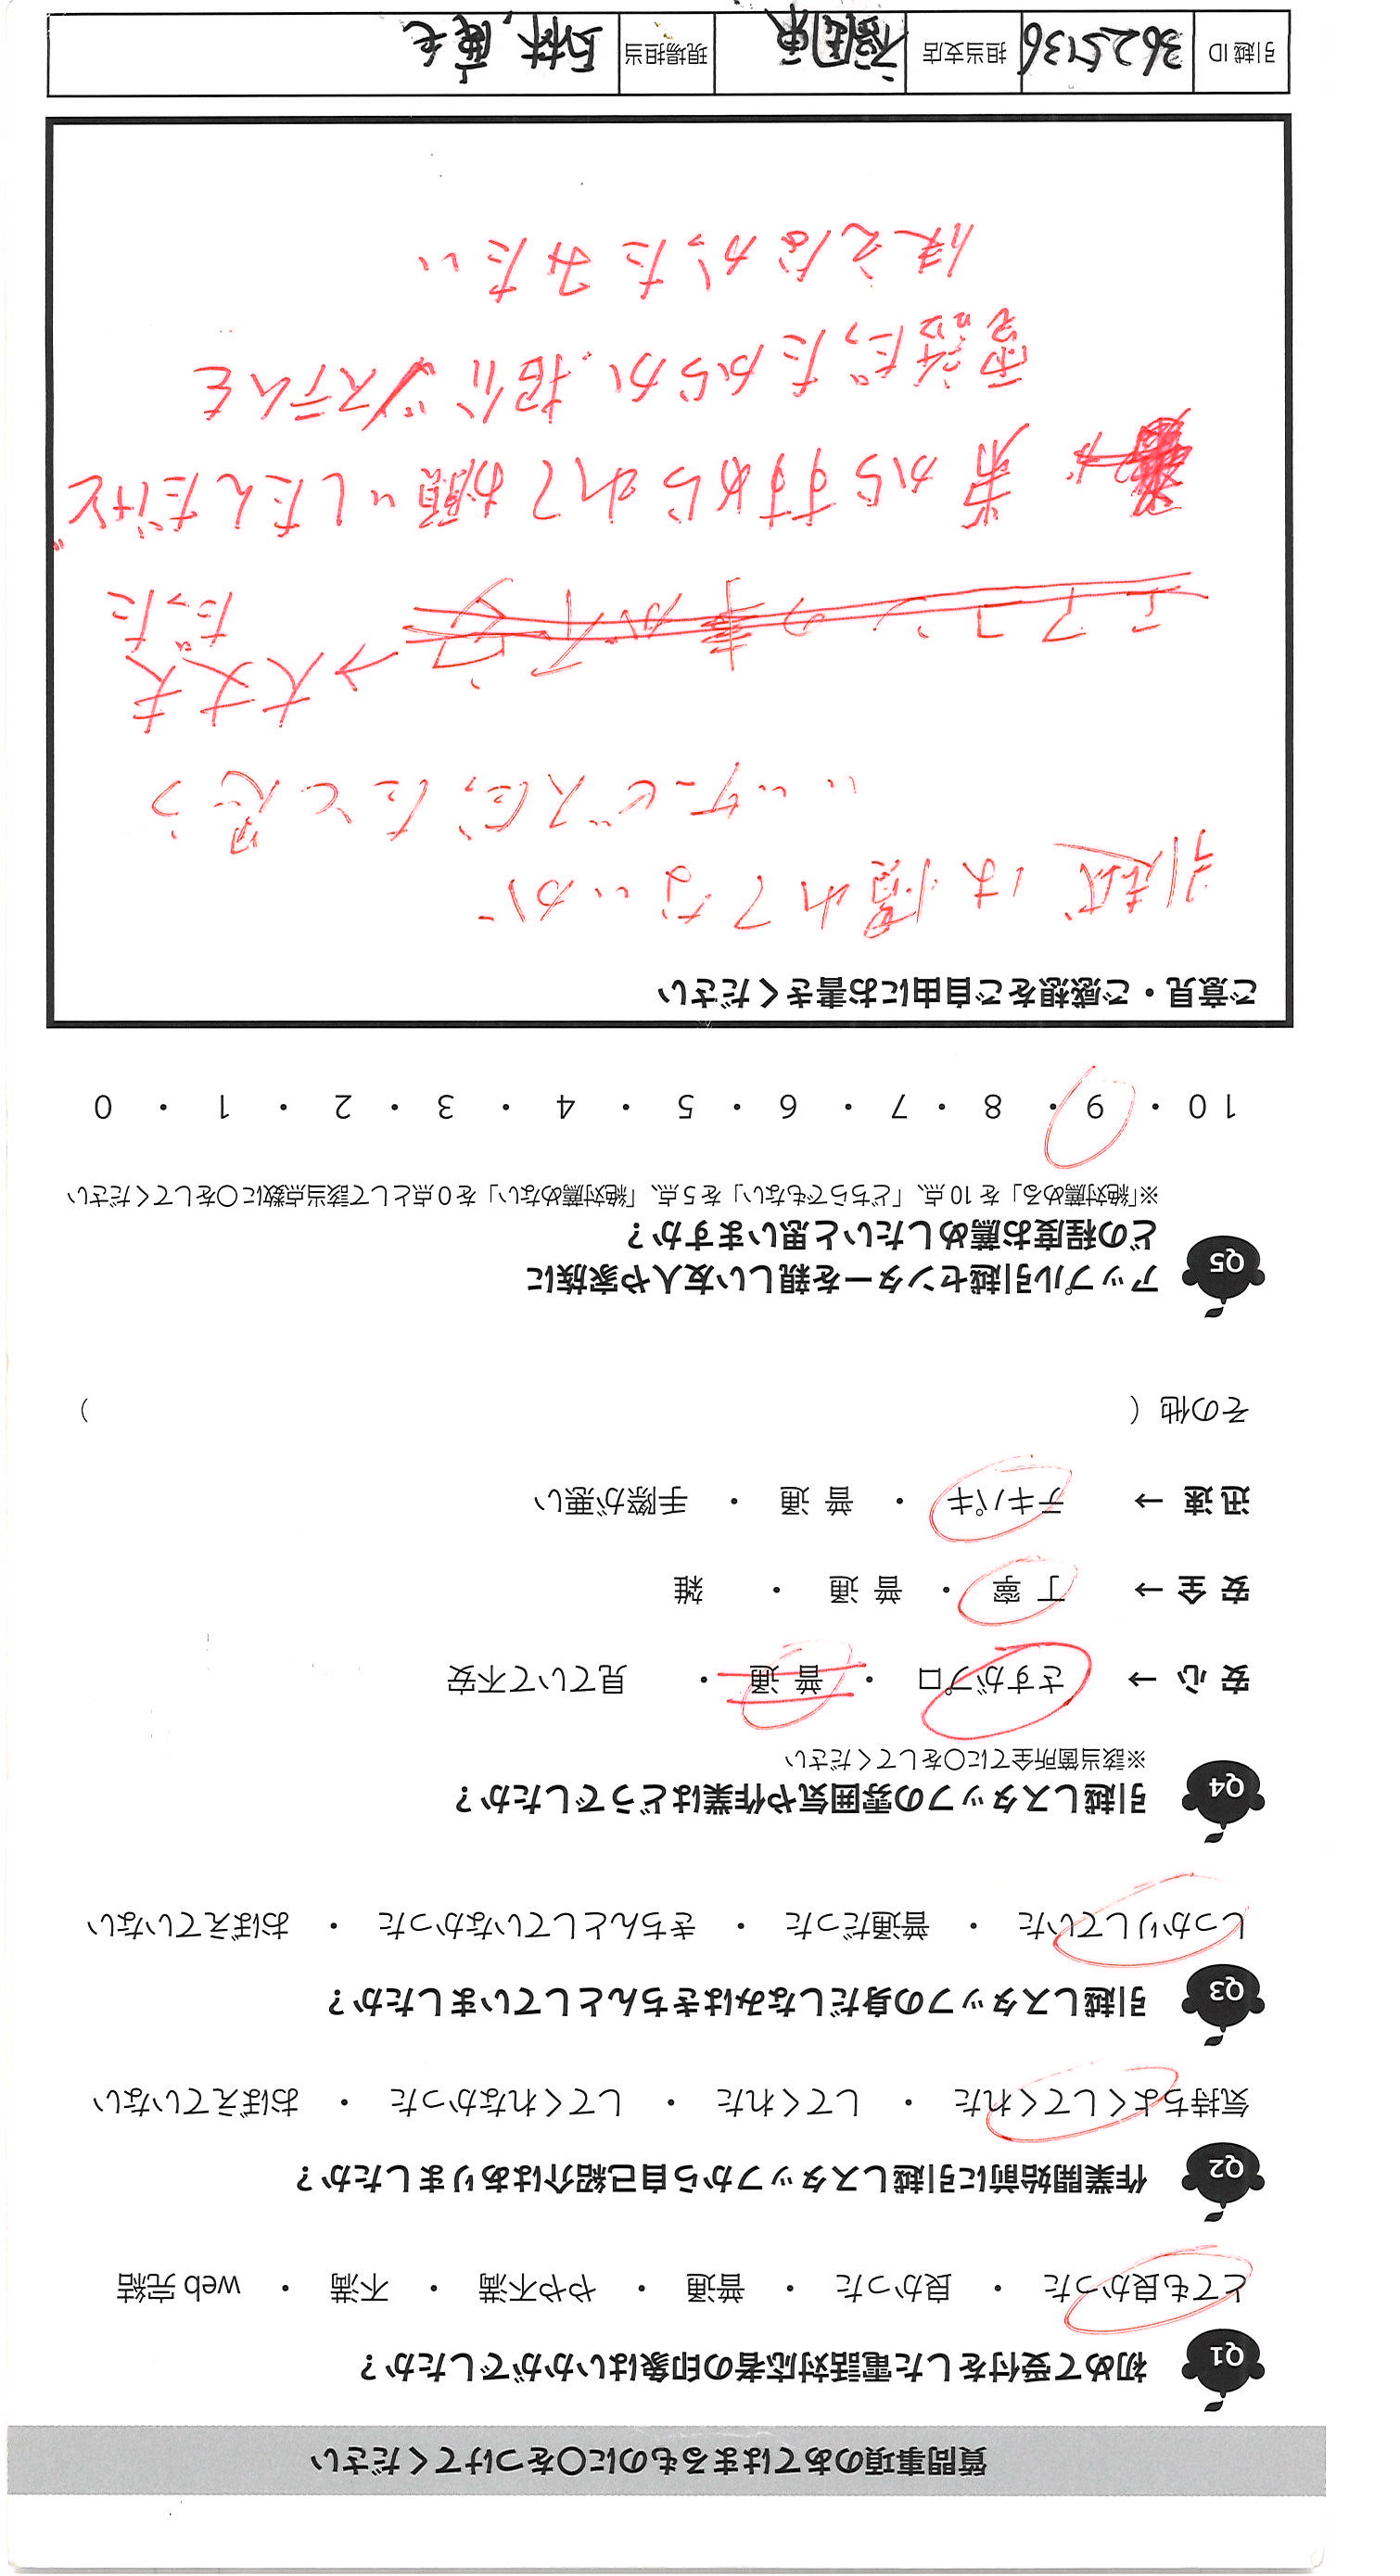 質問事項のあてはまるものに〇をつけてください
Q1 初めて受付をした電話対応者の印象はいかがでしたか？
とても良かった ・ 良かった ・ 普通 ・ やや不満 ・ 不満 ・ web 完結
Q2 作業開始前に引越しスタッフから自己紹介はありましたか？
気持ちよくしてくれた ・ してくれた ・ してくれなかった ・ おぼえていない
Q3 引越しスタッフの身だしなみはきちんとしていましたか？
しっかりしていた ・ 普通だった ・ きちんとしていなかった ・ おぼえていない
Q4 引越しスタッフの雰囲気や作業はどうでしたか？
※該当箇所全てに〇をしてください
安 心 → さすがプロ ・ 普 通 ・ 見ていて不安
安 全 → 丁 寧 ・ 普 通 ・ 雑
迅 速 → テキパキ ・ 普 通 ・ 手際が悪い
その他（ ）
Q5 アップル引越センターを親しい友人や家族に
どの程度お薦めしたいと思いますか？
※「絶対薦める」を 10 点、「どちらでもない」を 5 点、「絶対薦めない」を 0 点として該当点数に〇をしてください
10 ・ 9 ・ 8 ・ 7 ・ 6 ・ 5 ・ 4 ・ 3 ・ 2 ・ 1 ・ 0
ご意見・ご感想をご自由にお書きください
引越は慣れてないが
いいサービスだったと思う
エアコンの事が不安 → 大丈夫
だった
弟からすすめられてお願いしたんだけど
電話だったからか、紹介システムを
使えなかったみたい
引越 ID 3625736 担当支店 福岡東 現場担当